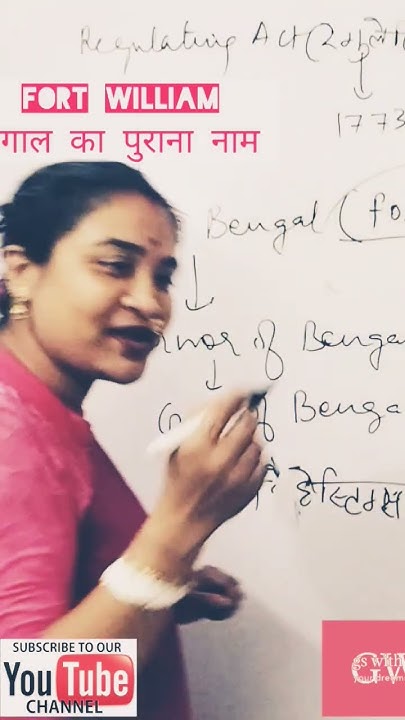 Regulating Act (
1773
FORT WILLIAM
गाल का पुराना नाम
Bengal (fo
rnor of Benga
G of Benga
हेस्टिंग्स
SUBSCRIBE TO OUR
YouTube
CHANNEL
gs with
GW
your dream